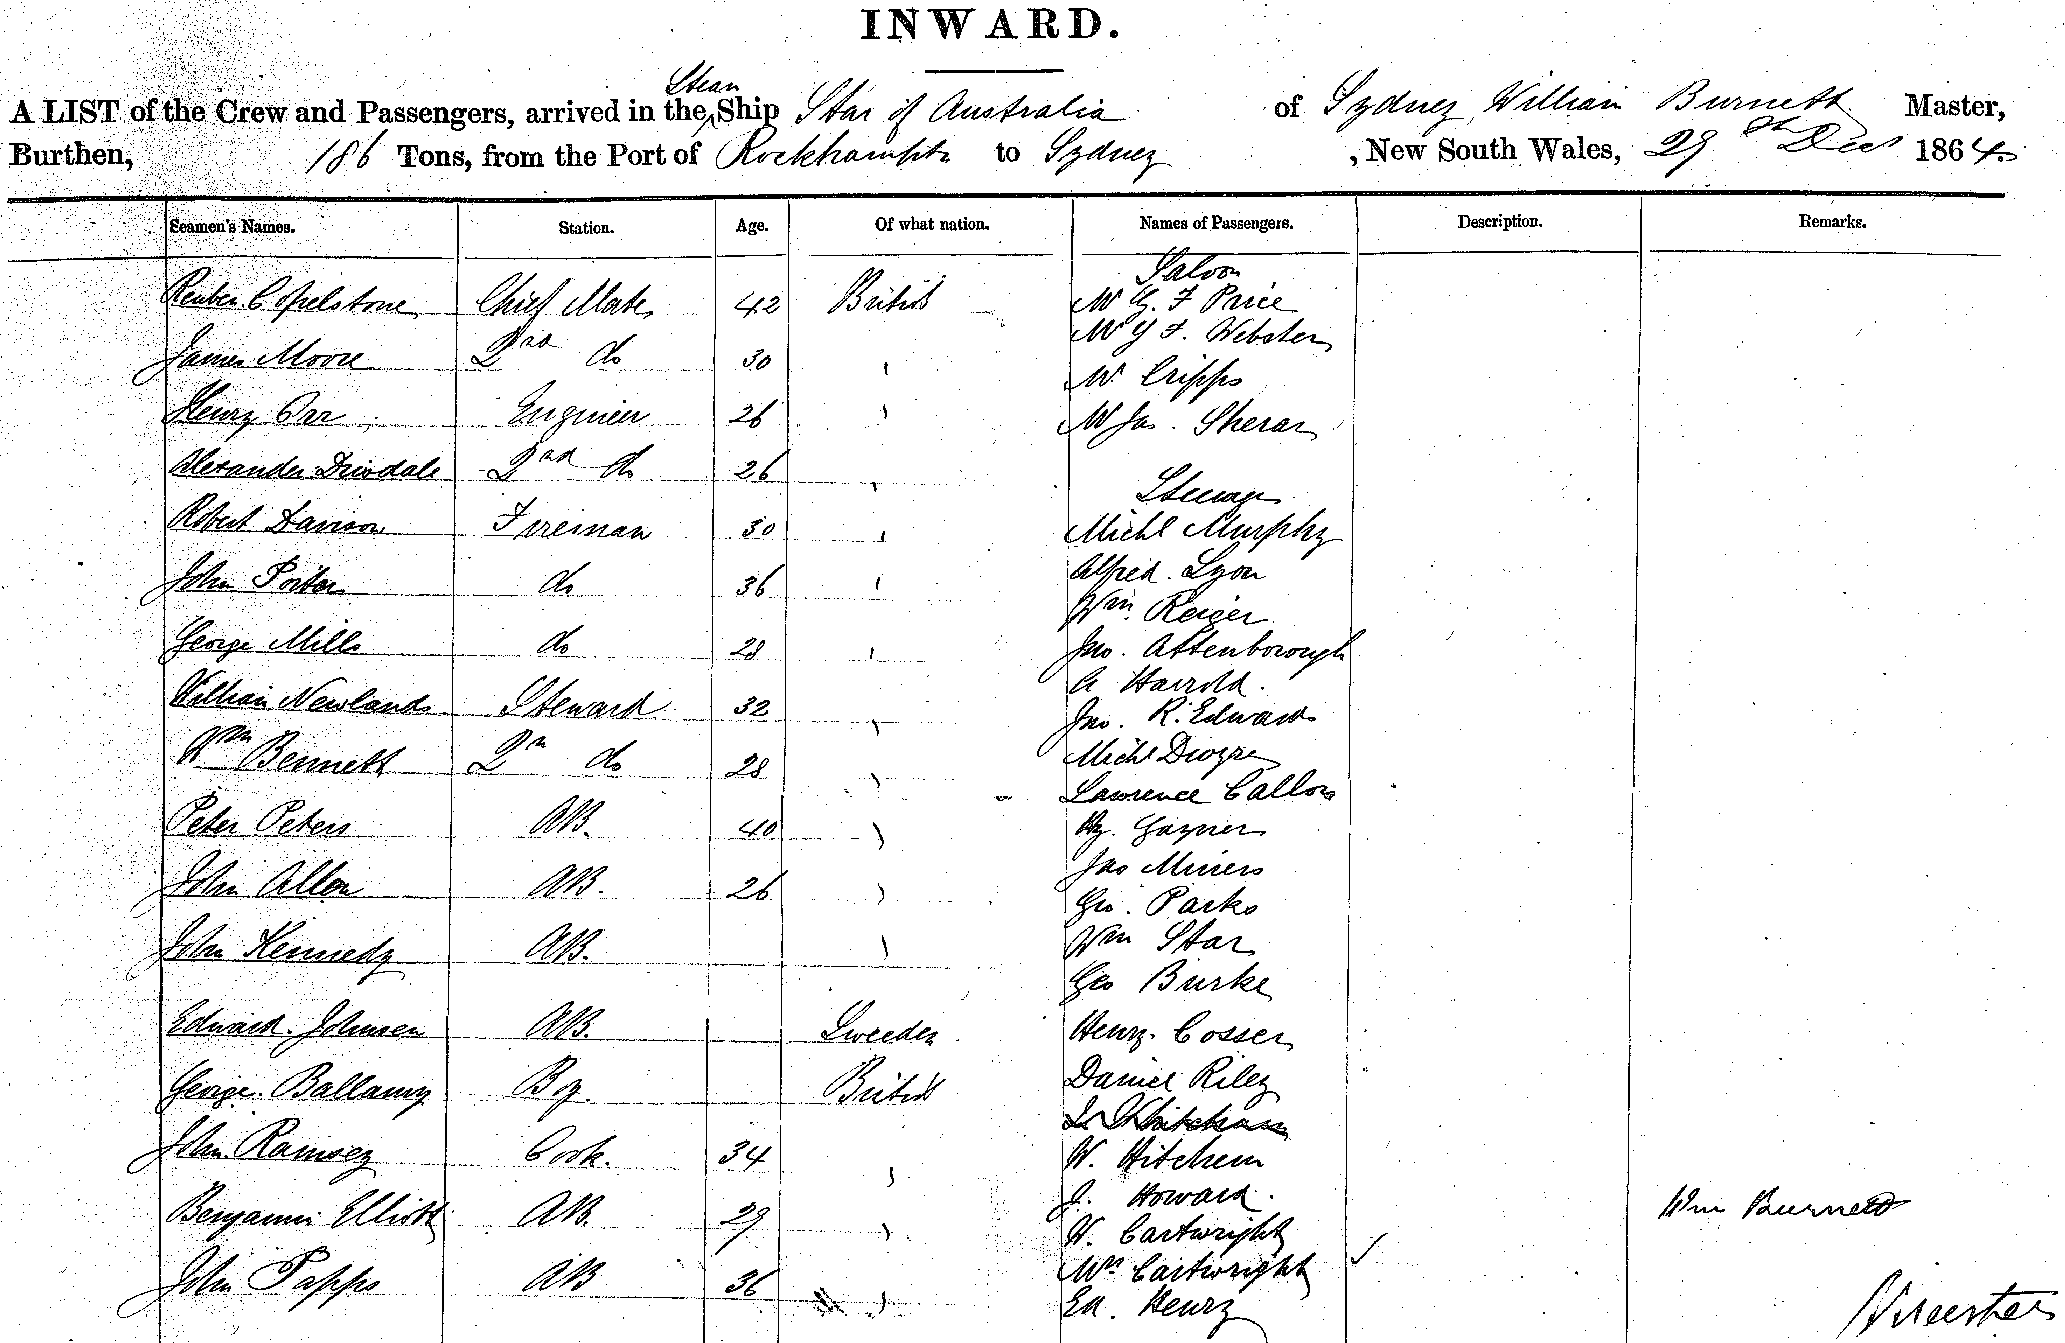 INWARD.
Steam
A LIST of the Crew and Passengers, arrived in the Ship Star of Australia of Sydney, William Burnett Master,
Burthen, 186 Tons, from the Port of Rockhampton to Sydney, New South Wales, 29th Dec 1864.
Seamen's Names. Station. Age. Of what nation. Names of Passengers. Description. Remarks.
Saloon
Reuben Copelstone Chief Mate 42 British Mr G. F Price
James Moore 2nd do 30 " Mr G F. Webster
Mr Cripps
Henry Orr Engineer 26 " Mr Jas. Sherar
Alexander Drisdale 2nd do 26 "
Steerage
Robert Davison Fireman 30 " Michl Murphy
John Porter do 36 " Alfred. Lyon
Wm. Reiger
George Mills do 28 " Jno. Attenborough
A Harrold.
William Newlands Steward 32 " Jno. R. Edwards
Wm Bennett 2n do 28 " Michl Dwyre
Lawrence Callon
Peter Peters AB. 40 " Hy. Gayner
Jas Miners
John Allen AB. 26 " Geo. Parks
John Kennedy AB. " Wm Star
Geo Burke
Edward. Johnsen AB. Sweeden Henry. Cosser
George. Ballamy Boy. British Daniel Riley
John Ramsey Cook. 34 " W. Hitchem
Benjamin Elliott AB. 29 " J. Howard. Wm Burnett
W. Cartwright
Mrs Cartwright
John Papps AB 36 " Ed. Henry